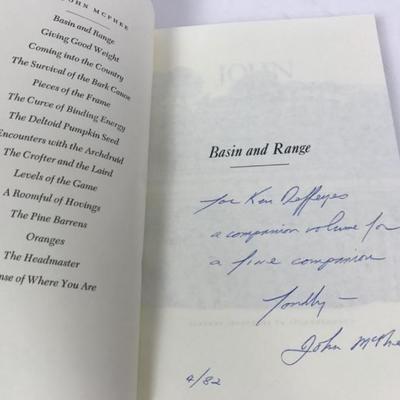 JOHN MCPHEE
Basin and Range
Giving Good Weight
Coming into the Country
The Survival of the Bark Canoe
Pieces of the Frame
The Curve of Binding Energy
The Deltoid Pumpkin Seed
Encounters with the Archdruid
The Crofter and the Laird
Levels of the Game
A Roomful of Hovings
The Pine Barrens
Oranges
The Headmaster
nse of Where You Are
Basin and Range
for Ken Deffeyes
a companion volume for
a fine companion
Fondly —
John McPhe
4/82